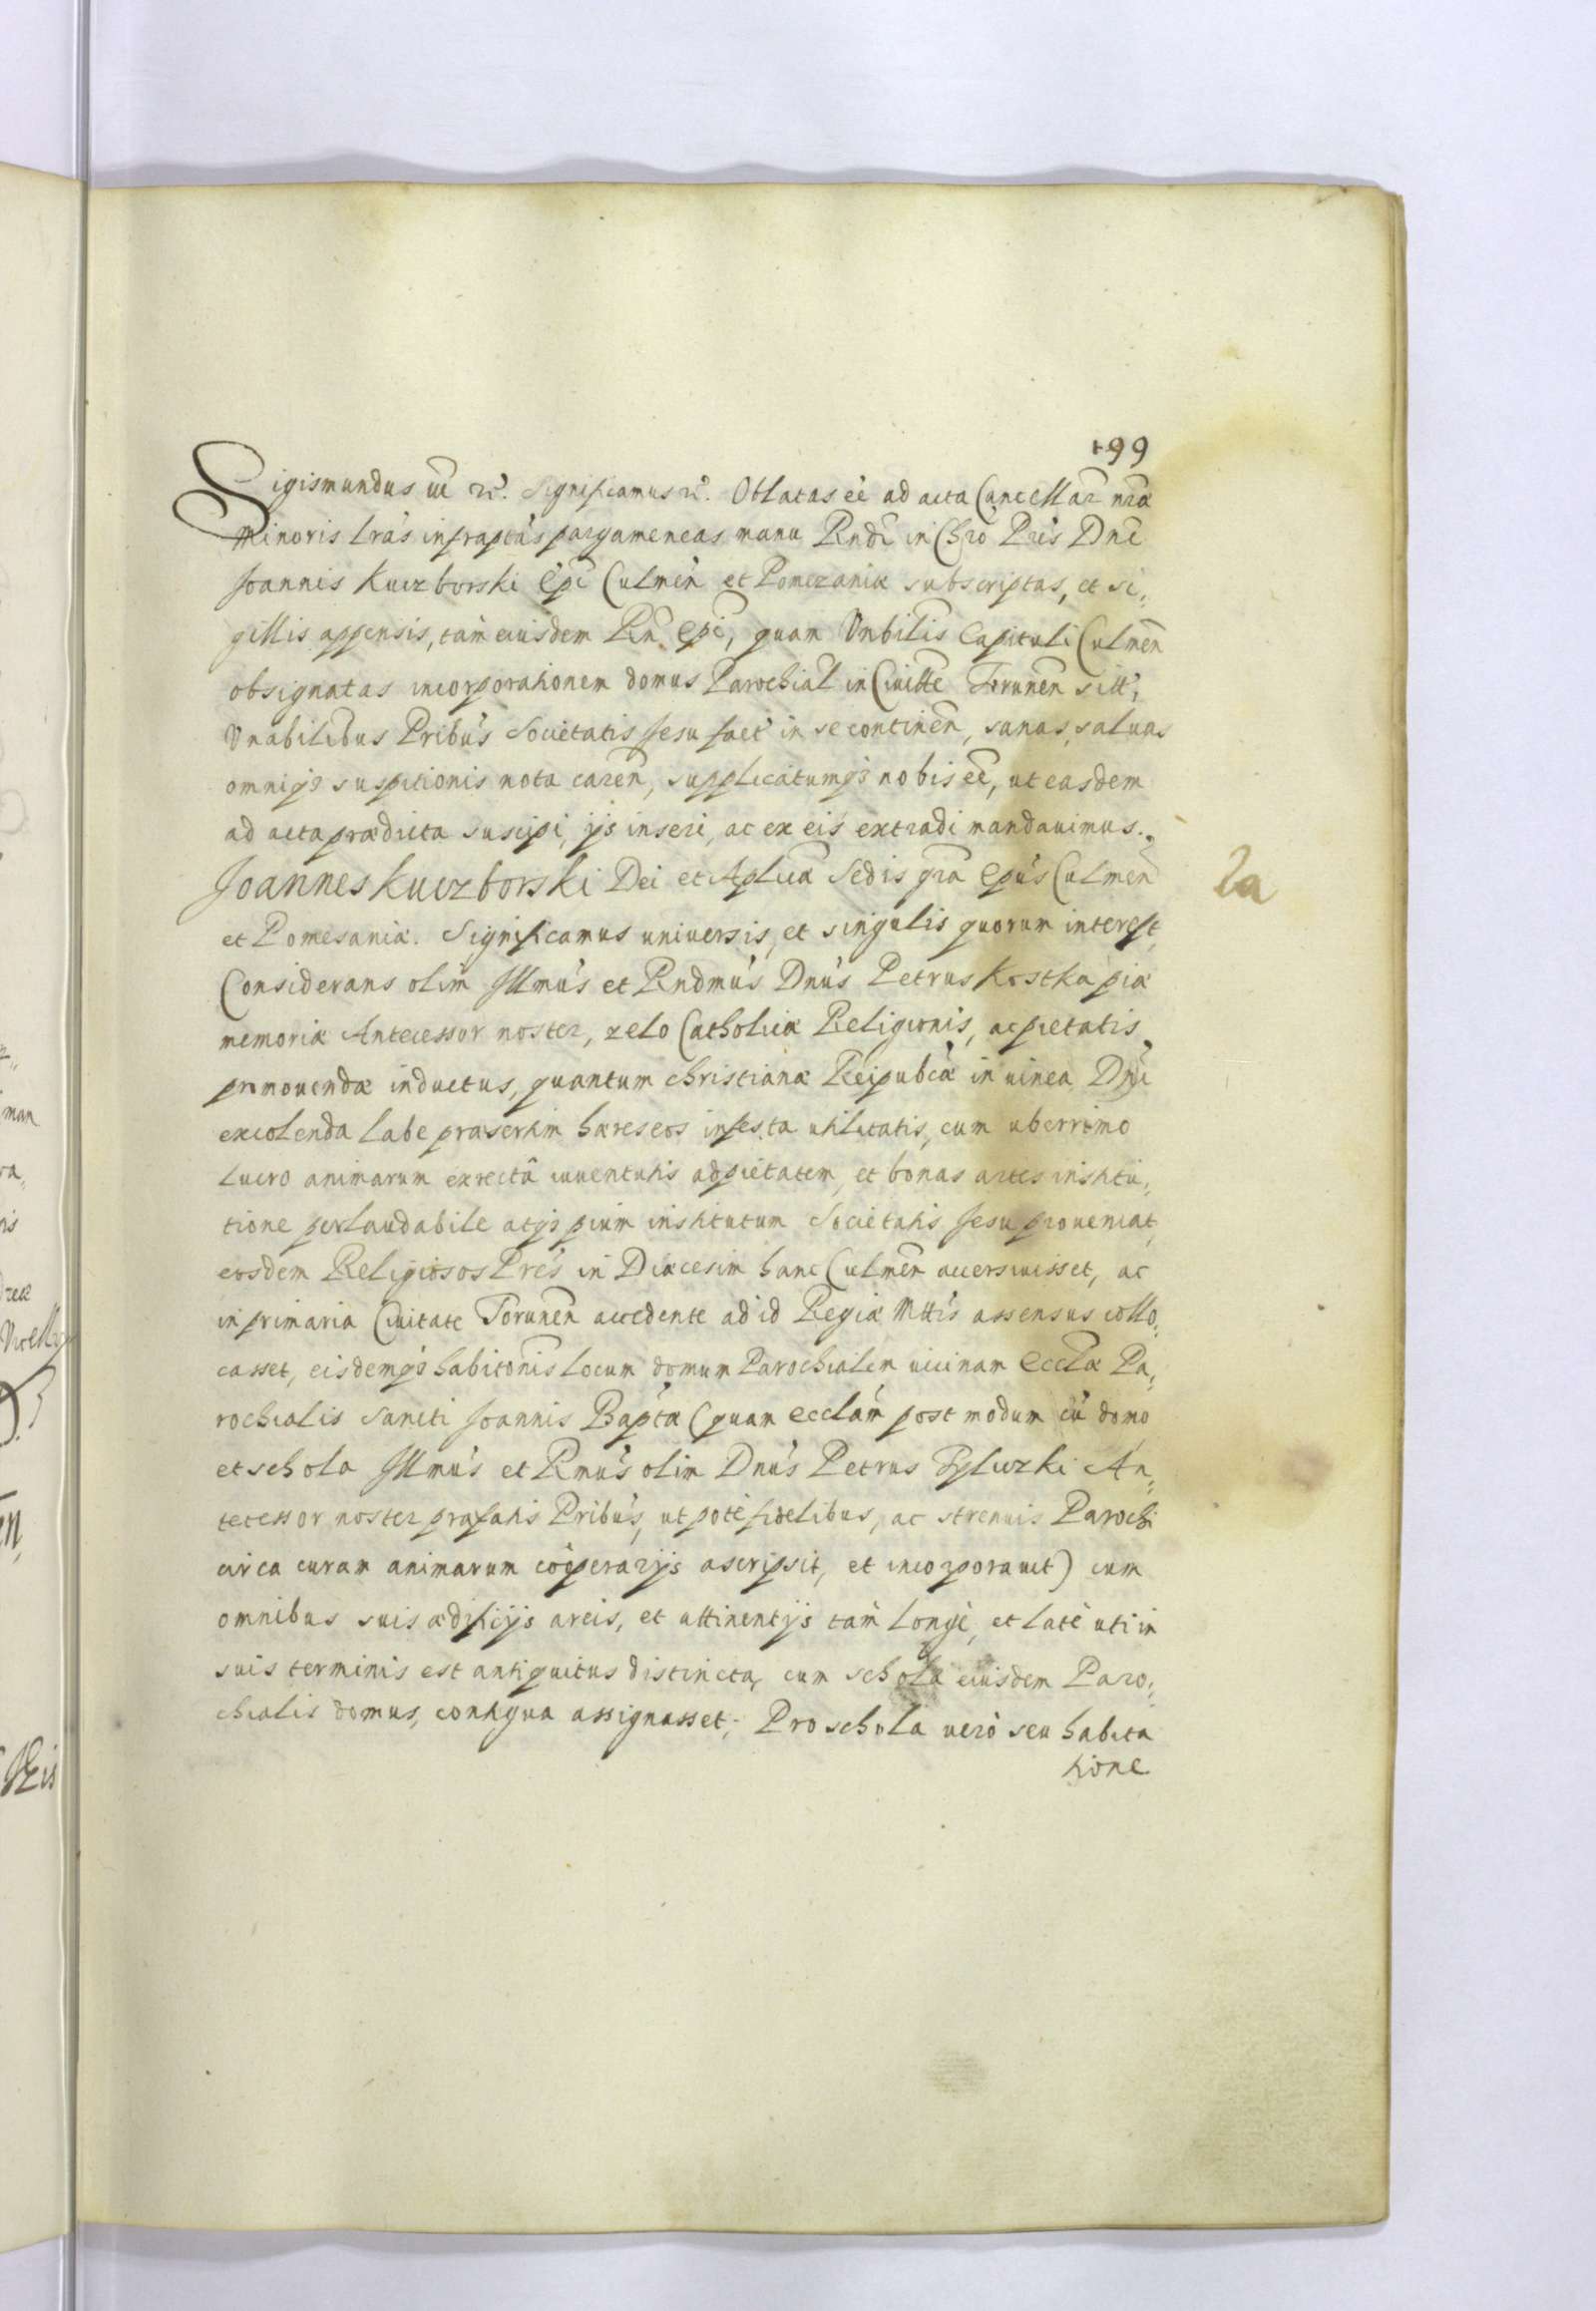 199
Sigismundus III etc. Significamus etc. Oblatas ee ad acta Cancellar nra
Minoris lras infraptas pargameneas manu Rndi in Chro Pris Dni
Joannis Kuczborski Epi Culmen et Pomezaniæ subscriptas, et si,,
gillis appensis, tam eiusdem Rn Epi, quam Vnbilis Capituli Culmen
obsignatas incorporationem domus Parochial in Ciuitte Torunen sitt,
Vnabilibus Pribus Societatis Jesu fact in se continen, sanas, saluas
omniqz suspitionis nota caren, supplicatumqz nobis ee, ut easdem
ad acta prædicta suscipi, ijs inseri, ac ex eis extradi mandauimus.
Joannes Kuczborski Dei et Aplica Sedis gra Epus Culmen
et Pomesaniæ. Significamus uniuersis, et singulis quorum interest,
Considerans olim Illmus et Rndmus Dnus Petrus Kostka piæ
memoriæ Antecessor noster, zelo Catholicæ Religionis, ac pietatis
promouendæ inductus, quantum christianæ Reipubcæ in uinea Dni
excolenda labe præsertim hæreseos infesta utilitatis, cum uberrimo
lucro animarum ex rectâ iuuentutis ad pietatem, et bonas artes institu,,
tione perlaudabile atqz pium institutum Societatis Jesu proueniat,
eosdem Religiosos Pres in Diæcesim hanc Culmen acciersiuisset, ac
in primaria Ciuitate Torunen accedente ad id Regiæ Mttis assensus collo,,
casset, eisdemqz habitonis locum domum Parochialem uicinam Ecclæ Pa,,
rochialis Sancti Joannis Baptæ (quam ecclam post modum cu domo
et schola Illmus et Rmus olim Dnus Petrus Tyliczki An,,
tecessor noster præfatis Pribus, ut pote fidelibus, ac strenuis Parochi
circa curam animarum cooperarijs ascripsit, et incorporauit) cum
omnibus suis ædificijs areis, et attinentijs tam longè, et latè uti in
suis terminis est antiquitus distincta, cum schola eiusdem Paro,,
chialis domus, contigua assignasset, Pro schola uero seu habita
tione
2a